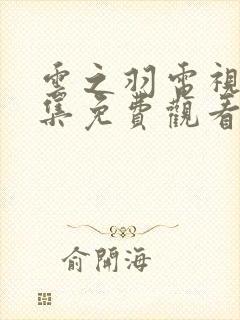 雲之羽電視
集免費觀看
俞開海